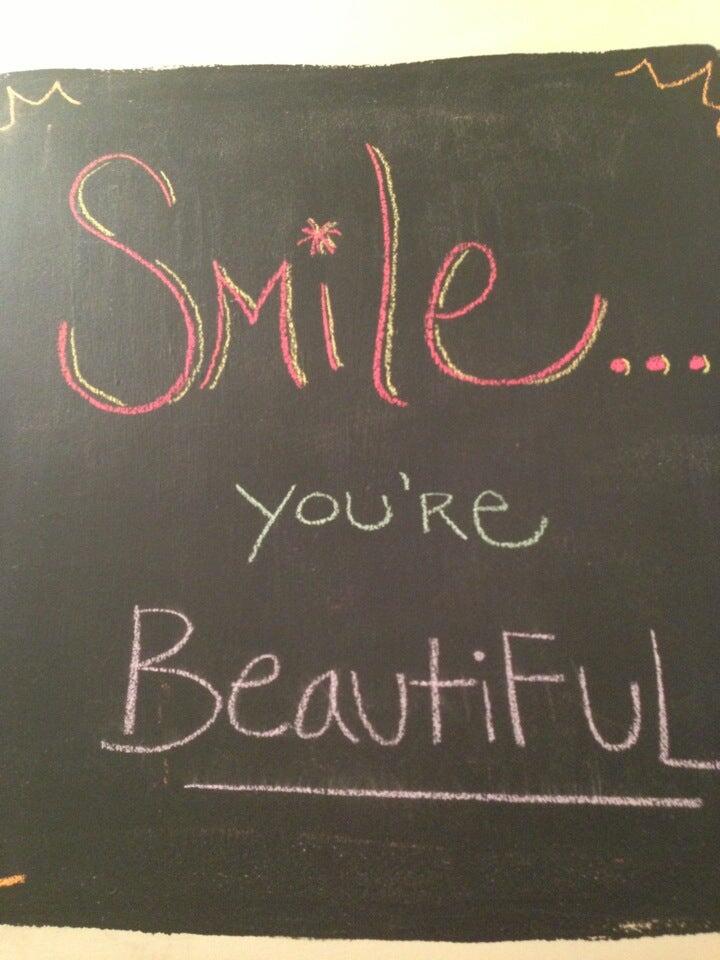 Smile...
you're
BeautiFuL